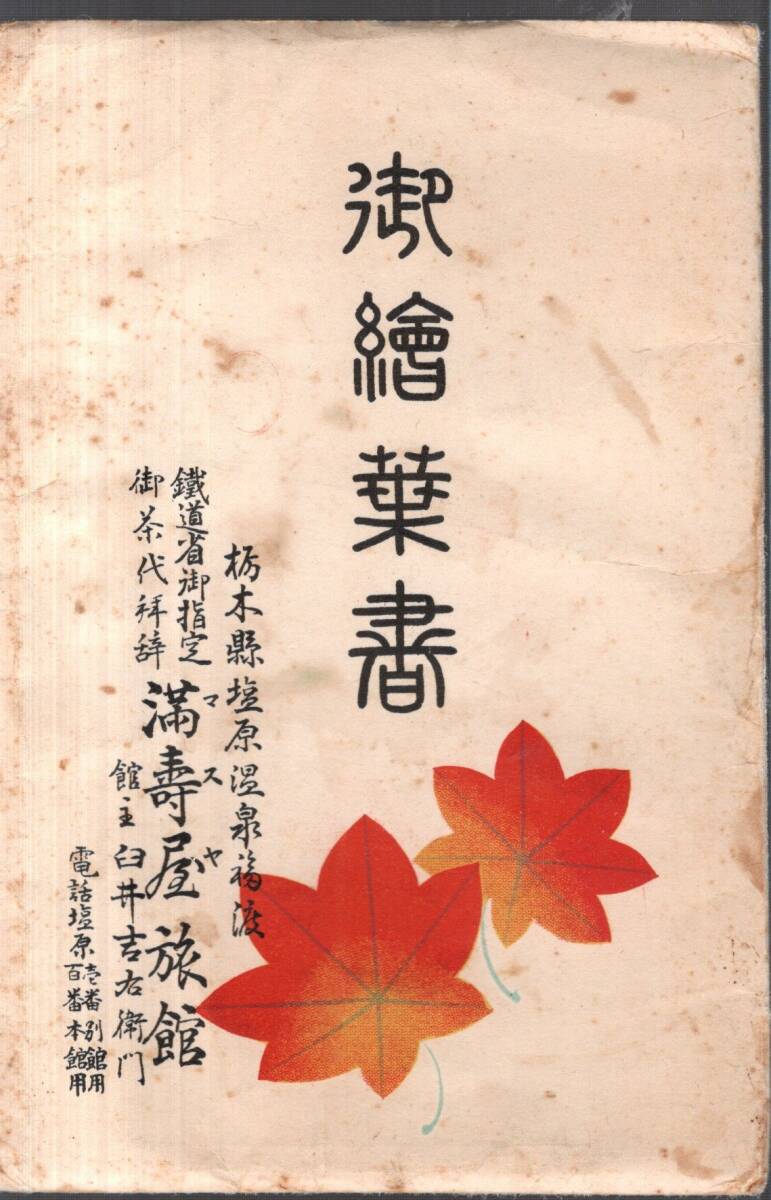 御繪葉書
栃木縣塩原温泉福渡
鐵道省御指定
御茶代拜辞
満壽屋旅館
マスヤ
館主 臼井吉右衛門
電話塩原
壱番別館用
百番本館用